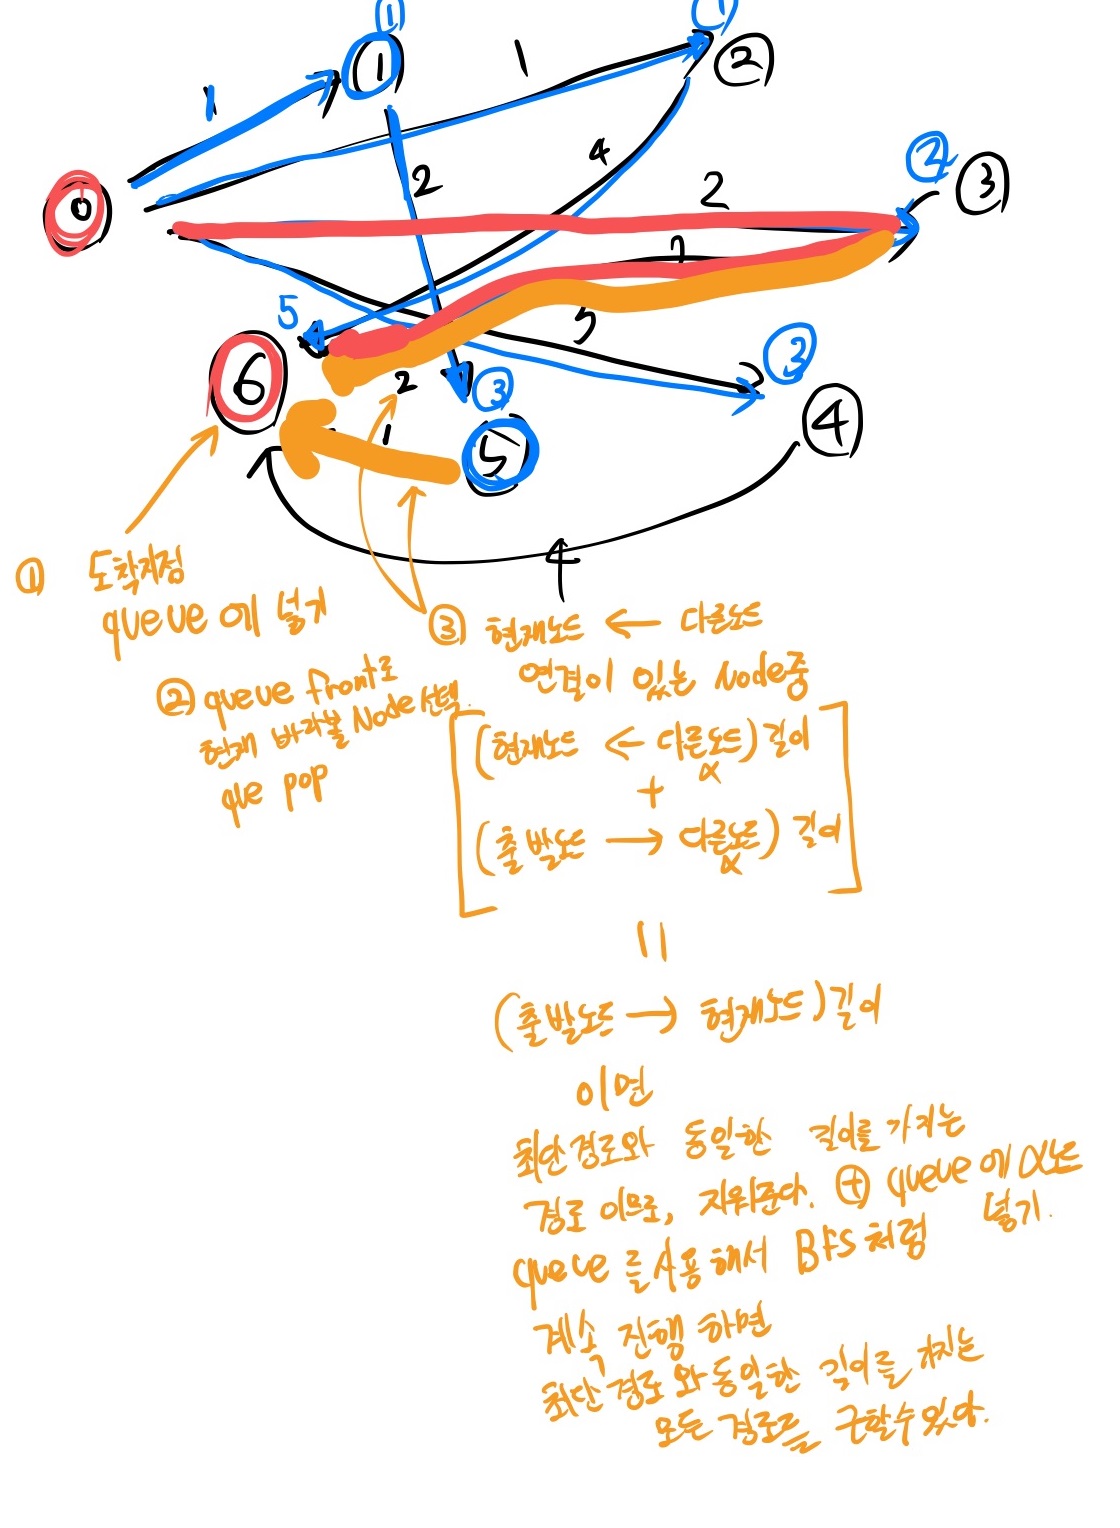 ① ①
1 ① 1 ②
0 2 4 2 ② ③
5 3 ③
6 2 ③ ④
1 5
4
① 도착지점
queue에 넣기
② queue front로
현재 바라볼 Node 선택.
que pop
③ 현재노드 ← 다른노드
연결이 있는 Node중
(현재노드 ← 다른노드) 길이
α
+
(출발노드 → 다른노드) 길이
α
=
(출발노드 → 현재노드) 길이
이면
최단경로와 동일한 길이를 가지는
경로 이므로, 지워준다. ⊕ queue에 α노드
넣기.
queue를 사용해서 BFS처럼
계속 진행하면
최단경로와 동일한 길이를 가지는
모든 경로를 구할수있다.